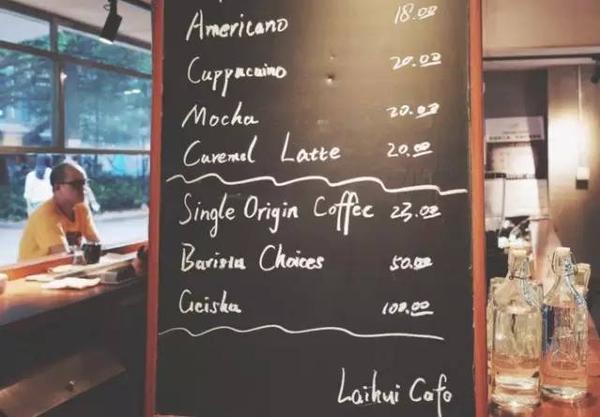 Americano 18.00
Cuppucuino 20.00
Mocha 20.00
Caremel Latte 20.00
Single Origin Coffee 23.00
Barista Choices 50.00
Geisha 108.00
Laihui Cafe